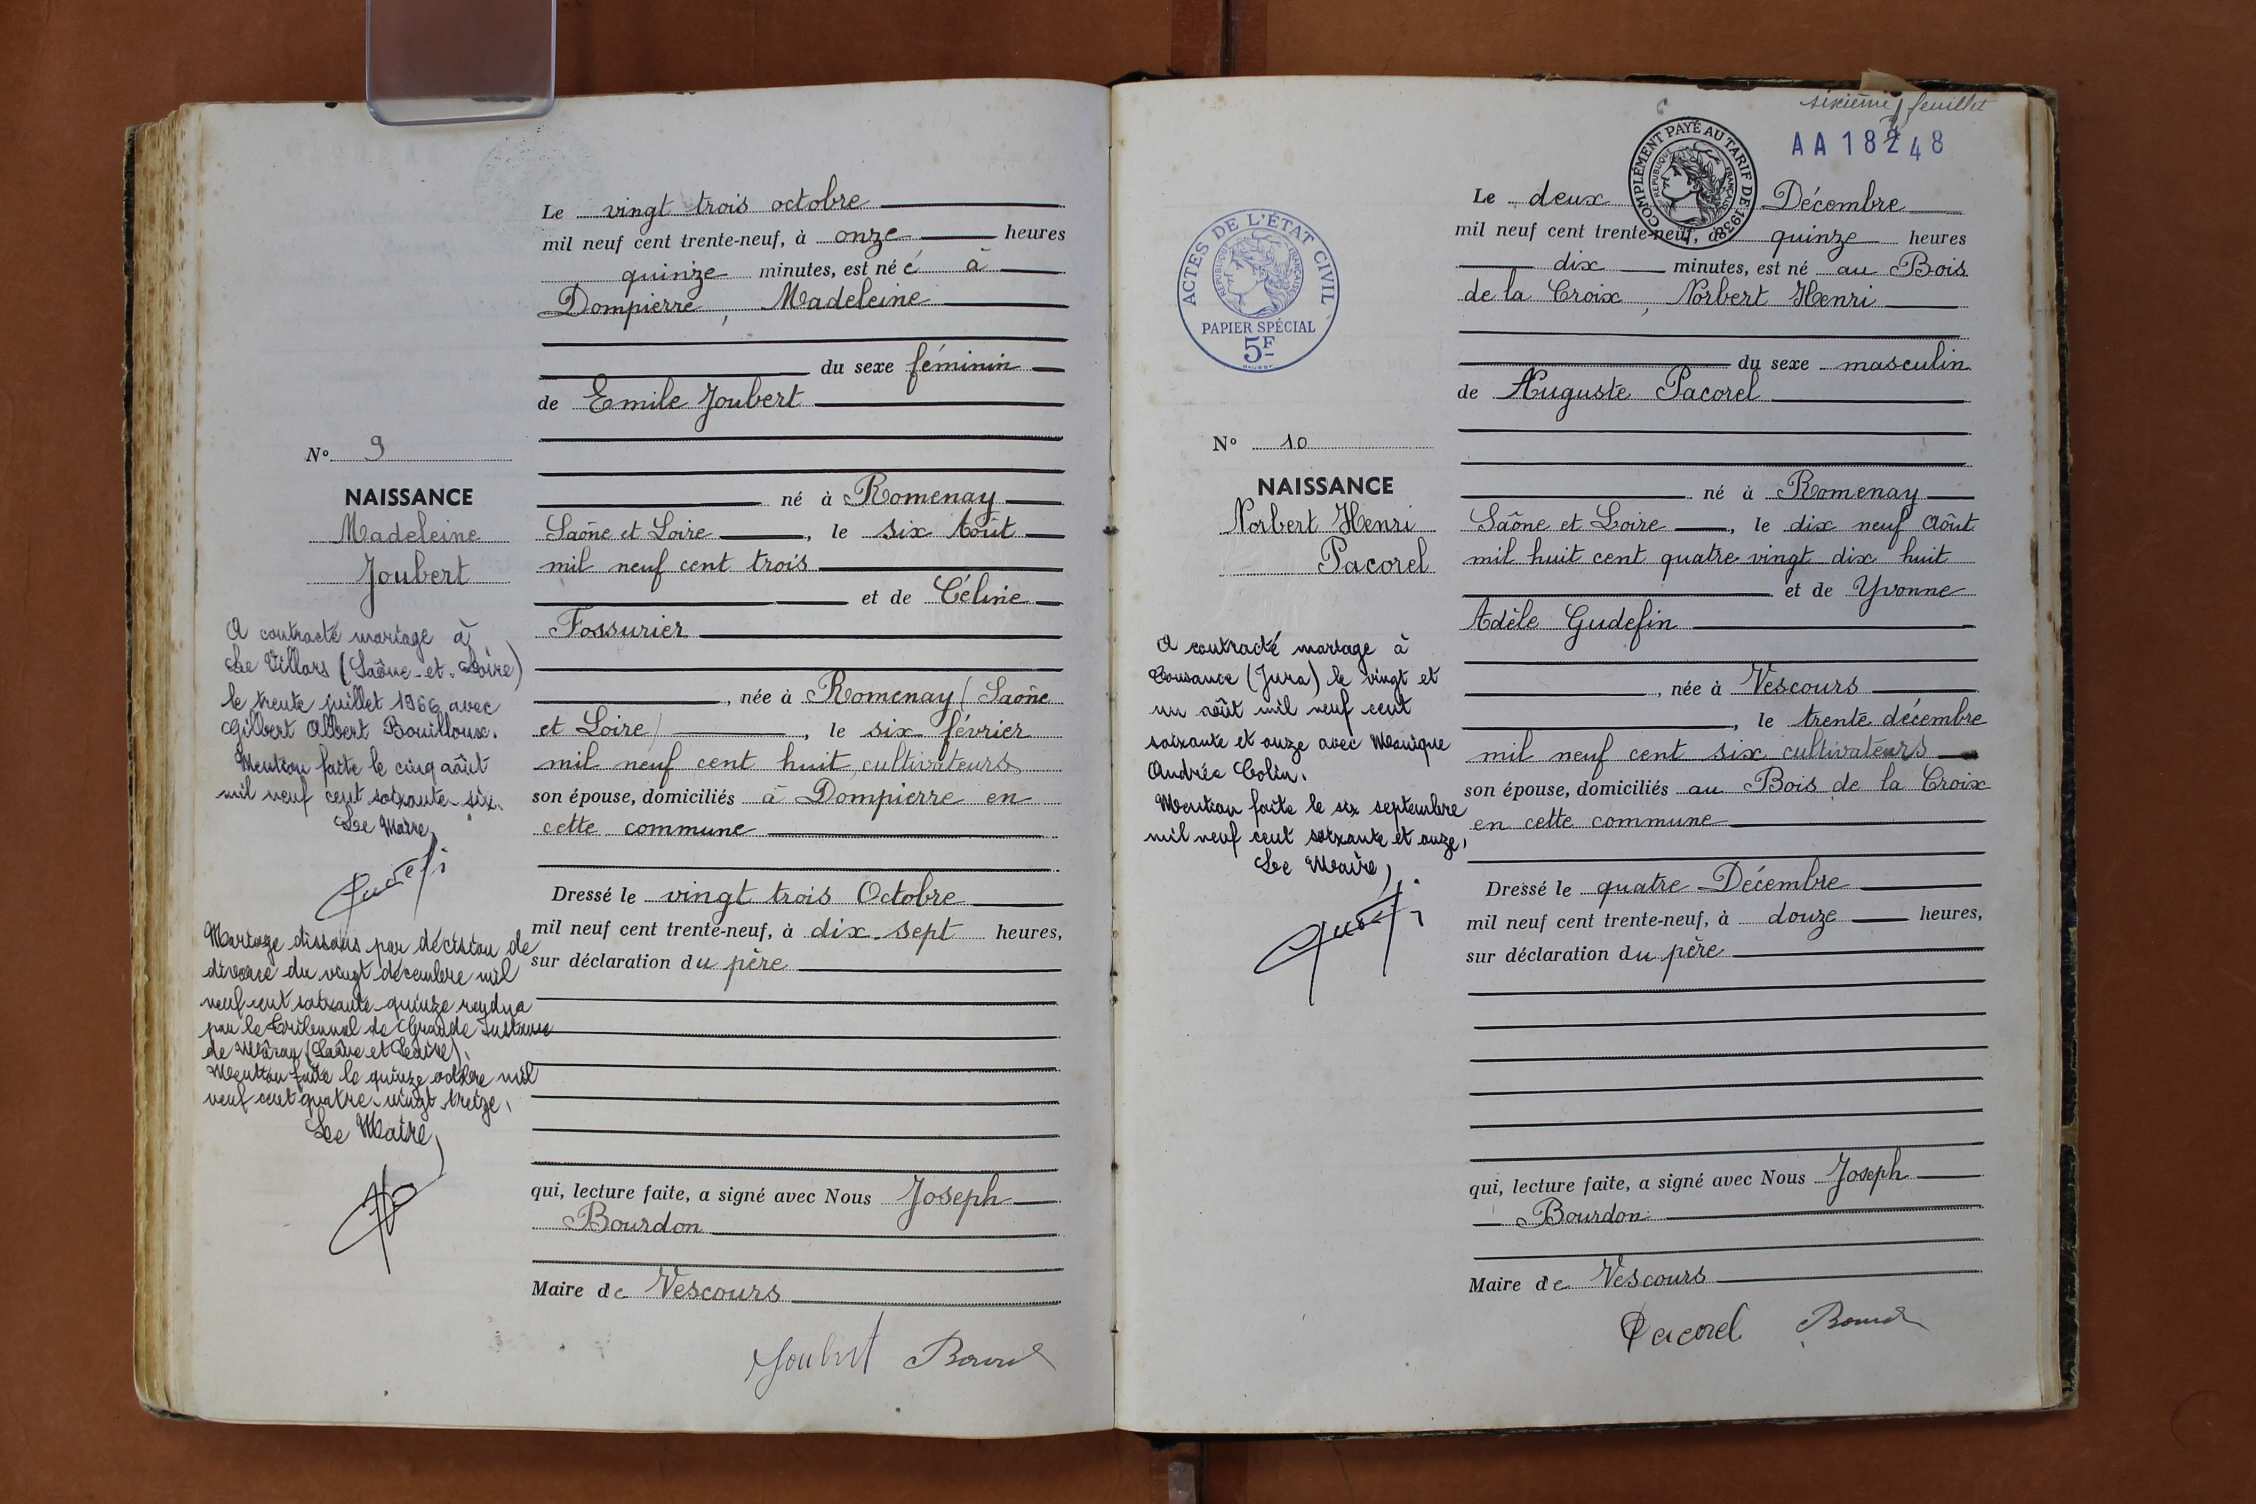 Le vingt trois octobre
mil neuf cent trente-neuf, à onze heures
quinze minutes, est née à
Dompierre, Madeleine
du sexe féminin
de Emile Joubert
N° 9
NAISSANCE
Madeleine
Joubert
né à Romenay
Saône et Loire, le six Août
mil neuf cent trois
et de Céline
Fossurier
née à Romenay (Saône
et Loire), le six février
mil neuf cent huit, cultivateurs
son épouse, domiciliés à Dompierre en
cette commune
Dressé le vingt trois Octobre
mil neuf cent trente-neuf, à dix-sept heures,
sur déclaration du père
qui, lecture faite, a signé avec Nous Joseph
Bourdon
Maire de Vescours
Joubert
A contracté mariage à
Le Villars (Saône-et-Loire)
le trente juillet 1966 avec
Gilbert Albert Bouilloux.
Mention faite le cinq août
mil neuf cent soixante-six.
Le Maire,
Mariage dissous par décision de
divorce du vingt décembre mil
neuf cent soixante-quinze rendue
par le Tribunal de Grande Instance
de Mâcon (Saône et Loire).
Mention faite le quinze octobre mil
neuf cent quatre-vingt-treize.
Le Maire,
sixième feuillet
AA 18248
COMPLÉMENT PAYÉ AU TARIF DE 1938
RÉPUBLIQUE FRANÇAISE
ACTES DE L'ÉTAT CIVIL
RÉPUBLIQUE FRANÇAISE
PAPIER SPÉCIAL
5F
Le deux Décembre
mil neuf cent trente-neuf, à quinze heures
dix minutes, est né au Bois
de la Croix, Norbert Henri
du sexe masculin
de Auguste Pacorel
N° 10
NAISSANCE
Norbert Henri
Pacorel
né à Romenay
Saône et Loire, le dix neuf Août
mil huit cent quatre vingt dix huit
et de Yvonne
Adèle Gudefin
née à Vescours
, le trente décembre
mil neuf cent six cultivateurs
son épouse, domiciliés au Bois de la Croix
en cette commune
Dressé le quatre Décembre
mil neuf cent trente-neuf, à douze heures,
sur déclaration du père
qui, lecture faite, a signé avec Nous Joseph
Bourdon
Maire de Vescours
Pacorel
A contracté mariage à
Cousance (Jura) le vingt et
un août mil neuf cent
soixante et onze avec Monique
Andrée Colin.
Mention faite le six septembre
mil neuf cent soixante et onze.
Le Maire,